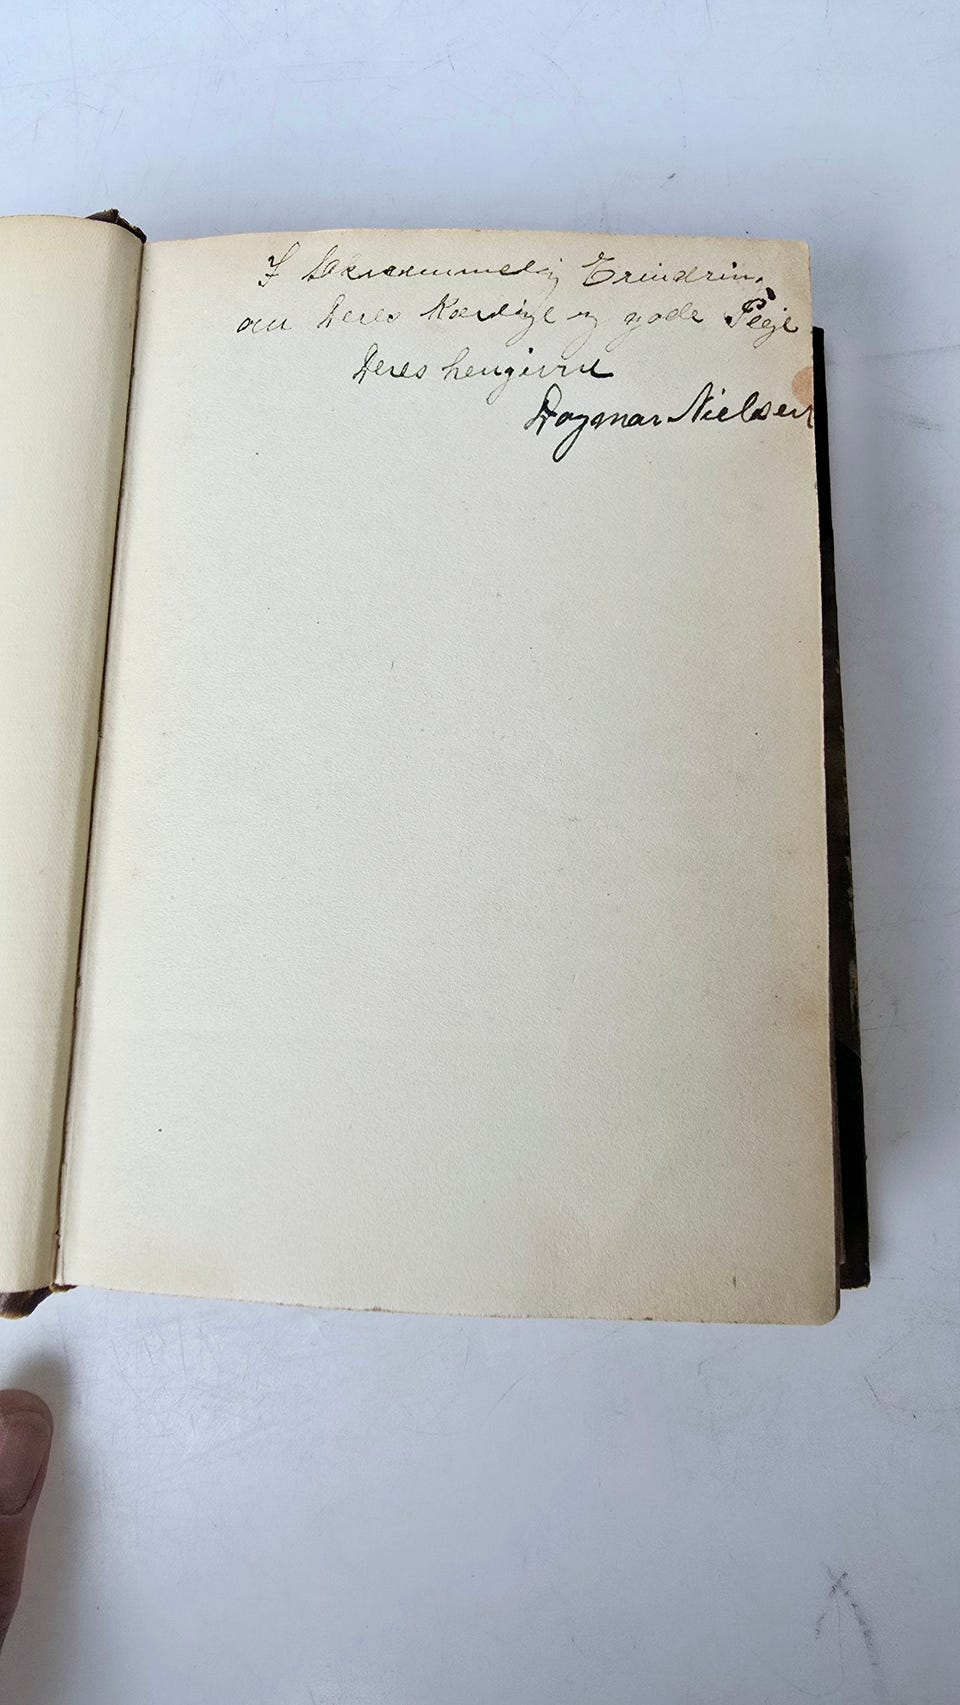 I taknemmelig Erindring
om Deres Kærlige og gode Pleje
Deres hengivne
Dagmar Nielsen